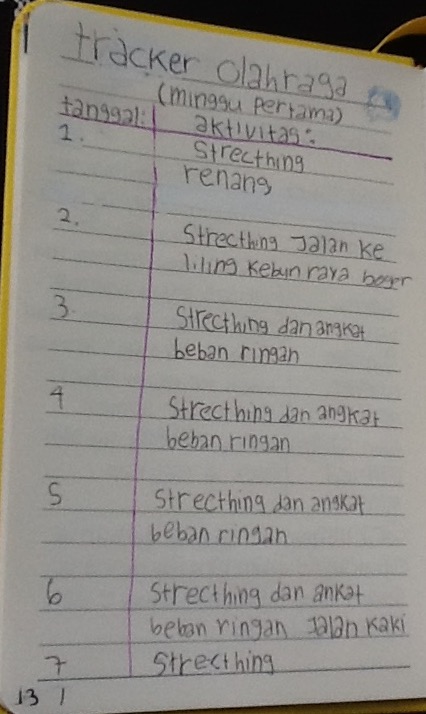 tracker olahraga
(minggu pertama)
tanggal: aktivitas:
1. Strecthing
renang
2. Strecthing Jalan ke
liling kebun raya boger
3. Strecthing dan angkat
beban ringan
4 Strecthing dan angkat
beban ringan
5 Strecthing dan angkat
beban ringan
6 Strecthing dan ankat
beban ringan Jalan kaki
7 Strecthing
13 1